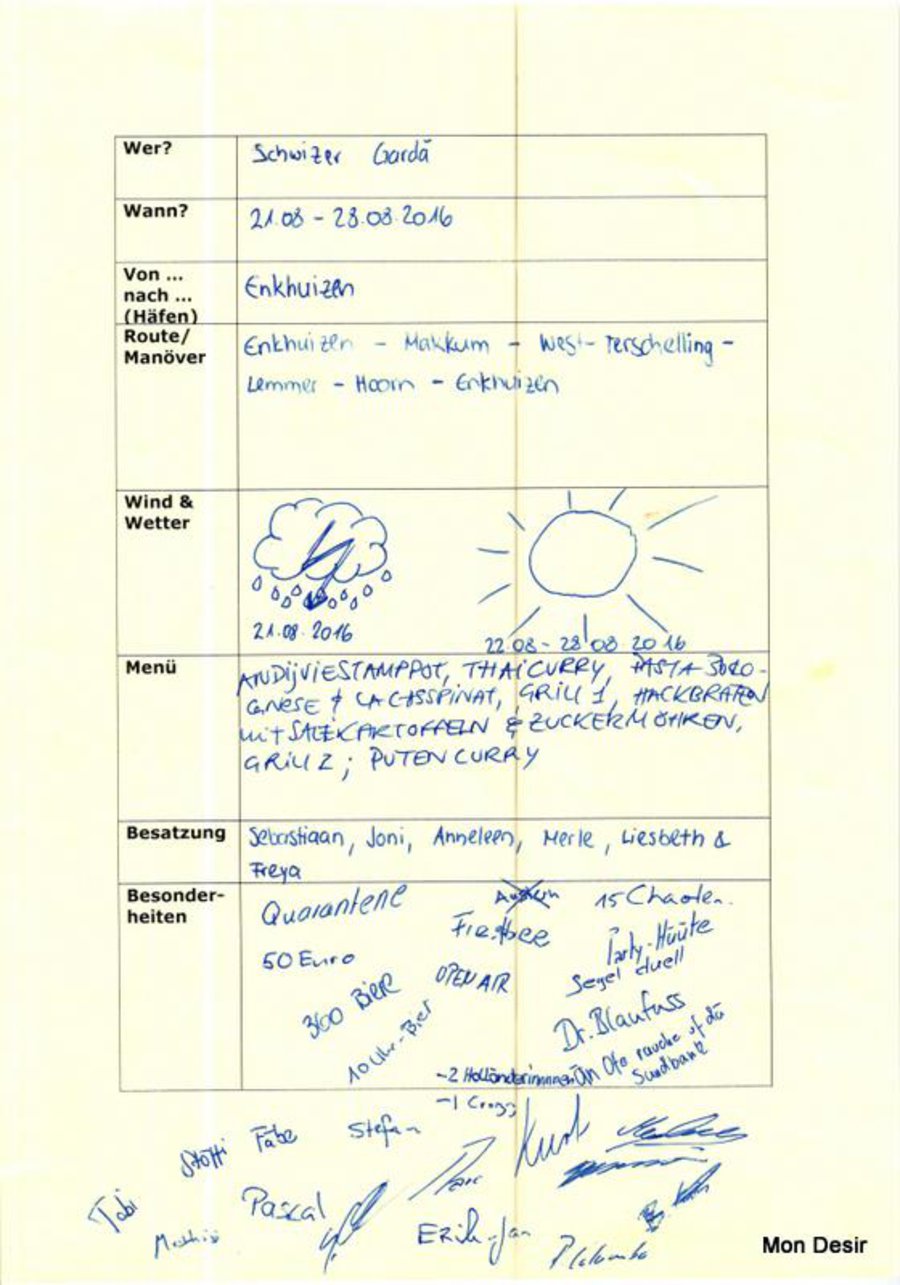 Wer?
Schwizer Gardä
Wann?
21.08 - 28.08.2016
Von ...
nach ...
(Häfen)
Enkhuizen
Route/
Manöver
Enkhuizen - Makkum - West-Terschelling -
Lemmer - Hoorn - Enkhuizen
Wind &
Wetter
21.08.2016
22.08 - 28.08 2016
Menü
ANDIJVIESTAMPPOT, THAICURRY, PASTA BOLO-
GNESE & LACHSSPINAT, GRILL 1, HACKBRATEN
mit SALZKARTOFFELN & ZUCKERMÖHREN,
GRILL 2; PUTENCURRY
Besatzung
Sebastiaan, Joni, Anneleen, Merle, Liesbeth &
Freya
Besonder-
heiten
Quarantene
15 Chaoten.
50 Euro
Party-Hüüte
Segel duell
OPEN AIR
300 BIER
10 Uhr-Bier
Dr. Blaufuss
än Ote rauche uf dä
Sundbank
-2 Holländerinnnen
-1
Tobi
Stöffi
Fäbe
Stefan
Marc
Kurt
Pascal
Erik-Jan
Mon Desir